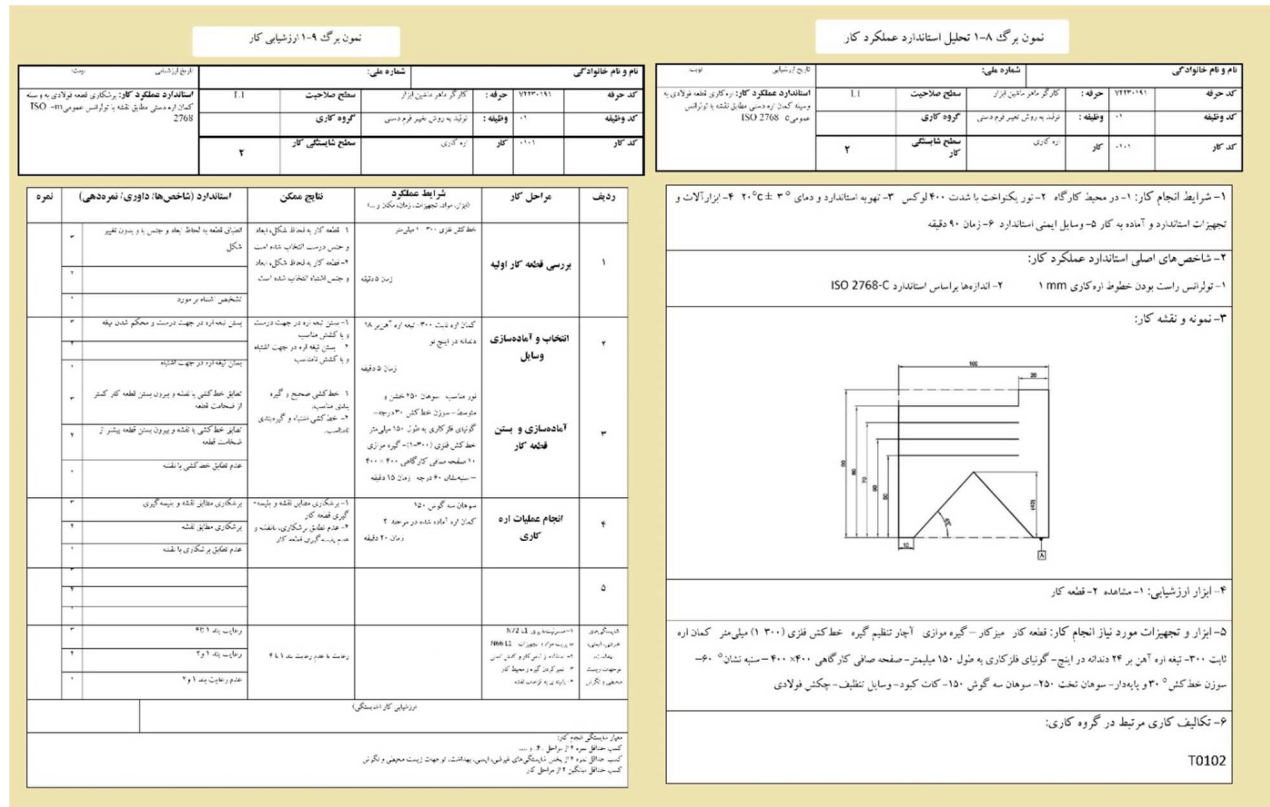 نمون برگ ۸-۱ تحلیل استاندارد عملکرد کار
نام و نام خانوادگی
شماره ملی:
تاریخ ارزشیابی
نوبت
کد حرفه
۷۲۲۳۰۱۹۱
حرفه :
کارگر ماهر ماشین ابزار
سطح صلاحیت
L1
استاندارد عملکرد کار: اره‌کاری قطعه فولادی به
وسیله کمان اره دستی مطابق نقشه با تولرانس
عمومی ISO 2768 c
کد وظیفه
۰۱
وظیفه :
تولید به روش تغییر فرم دستی
گروه کاری
کد کار
۰۱۰۱
کار
اره کاری
سطح شایستگی
کار
۲
۱- شرایط انجام کار: ۱- در محیط کارگاه ۲- نور یکنواخت با شدت ۴۰۰ لوکس ۳- تهویه استاندارد و دمای ۲۰°c ± ۳° ۴- ابزارآلات و
تجهیزات استاندارد و آماده به کار ۵- وسایل ایمنی استاندارد ۶- زمان ۹۰ دقیقه
۲- شاخص‌های اصلی استاندارد عملکرد کار:
۱- تولرانس راست بودن خطوط اره‌کاری ۱ mm ۲- اندازه‌ها براساس استاندارد ISO 2768-C
۳- نمونه و نقشه کار:
100
20
70
10
A
۴- ابزار ارزشیابی: ۱- مشاهده ۲- قطعه کار
۵- ابزار و تجهیزات مورد نیاز انجام کار: قطعه کار میزکار – گیره موازی آچار تنظیم گیره خط کش فلزی (۳۰۰ ۱) میلی‌متر کمان اره
ثابت ۳۰۰- تیغه اره آهن بر ۲۴ دندانه در اینچ- گونیای فلزکاری به طول ۱۵۰ میلیمتر- صفحه صافی کارگاهی ۴۰۰×۴۰۰ – سنبه نشان ۶۰°-
سوزن خط کش ۳۰° و پایه‌دار- سوهان تخت ۲۵۰- سوهان سه گوش ۱۵۰- کات کبود- وسایل تنظیف- چکش فولادی
۶- تکالیف کاری مرتبط در گروه کاری:
T0102
نمون برگ ۹-۱ ارزشیابی کار
نام و نام خانوادگی
شماره ملی:
تاریخ ارزشیابی
نوبت:
کد حرفه
۷۲۲۳۰۱۹۱
حرفه :
کارگر ماهر ماشین ابزار
سطح صلاحیت
L1
استاندارد عملکرد کار: برشکاری قطعه فولادی به وسیله
کمان اره دستی مطابق نقشه با تولرانس عمومی ISO -m
2768
کد وظیفه
۰۱
وظیفه :
تولید به روش تغییر فرم دستی
گروه کاری
کد کار
۰۱۰۱
کار
اره کاری
سطح شایستگی کار
۲
ردیف
مراحل کار
شرایط عملکرد
(ابزار، مواد، تجهیزات، زمان، مکان و ...)
نتایج ممکن
استاندارد (شاخص‌ها/ داوری/ نمره‌دهی)
نمره
۱
بررسی قطعه کار اولیه
خط کش فلزی ۳۰۰ ۱ میلی‌متر
زمان ۵ دقیقه
۱ قطعه کار به لحاظ شکل، ابعاد
و جنس درست انتخاب شده است
۲- قطعه کار به لحاظ شکل، ابعاد
و جنس اشتباه انتخاب شده است
انطباق قطعه به لحاظ ابعاد و جنس با و بدون تغییر
شکل
۳
۲
تشخیص اشتباه بر مورد
۱
۲
انتخاب و آماده‌سازی
وسایل
کمان اره ثابت ۳۰۰- تیغه اره آهن‌بر ۱۸
دندانه در اینچ نو
زمان ۵ دقیقه
۱- بستن تیغه اره در جهت درست
و با کشش مناسب
۲ بستن تیغه اره در جهت اشتباه
و با کشش نامناسب
بستن تیغه اره در جهت درست و محکم شدن تیغه
۳
۲
بستن تیغه اره در جهت اشتباه
۱
۳
آماده‌سازی و بستن
قطعه کار
نور مناسب سوهان ۲۵۰ خشن و
متوسط- سوزن خط کش ۳۰ درجه-
گونیای فلزکاری به طول ۱۵۰ میلی‌متر
خط کش فلزی (۳۰۰-۱)- گیره موازی
۱۰ صفحه صافی کارگاهی ۴۰۰ × ۴۰۰
– سنبه‌نشان ۶۰ درجه زمان ۱۵ دقیقه
۱ خط‌کشی صحیح و گیره
بندی مناسب
۲- خط‌کشی اشتباه و گیره‌بندی
نامناسب
تطابق خط‌کشی با نقشه و بیرون بستن قطعه کار کمتر
از ضخامت قطعه
۳
تطابق خط‌کشی با نقشه و بیرون بستن قطعه بیشتر از
ضخامت قطعه
۲
عدم تطابق خط‌کشی با نقشه
۱
۴
انجام عملیات اره
کاری
سوهان سه گوش ۱۵۰
کمان اره آماده شده در مرحله ۲
زمان ۲۰ دقیقه
۱- برشکاری مطابق نقشه و پلیسه-
گیری قطعه کار
۲- عدم تطابق برشکاری با نقشه و
عدم پلیسه‌گیری قطعه کار
برشکاری مطابق نقشه و پلیسه‌گیری
۳
برشکاری مطابق نقشه
۲
عدم تطابق برشکاری با نقشه
۱
۵
۳
۲
۱
شایستگی‌های
غیرفنی، ایمنی،
بهداشت،
توجهات زیست
محیطی و نگرش
۱- مسئولیت‌پذیری N72 L1
N66 L1
۴ تمیز کردن گیره و محیط کار
رعایت یا عدم رعایت بند ۱ تا ۴
رعایت بند ۱ تا ۴
۳
رعایت بند ۱ و ۲
۲
عدم رعایت بند ۱ و ۲
۱
ارزشیابی کار (شایستگی)
معیار شایستگی انجام کار:
کسب حداقل نمره ۲ از مراحل ۴، و ....
کسب حداقل نمره ۲ از بخش شایستگی‌های غیرفنی، ایمنی، بهداشت، توجهات زیست محیطی و نگرش
کسب حداقل میانگین ۲ از مراحل کار